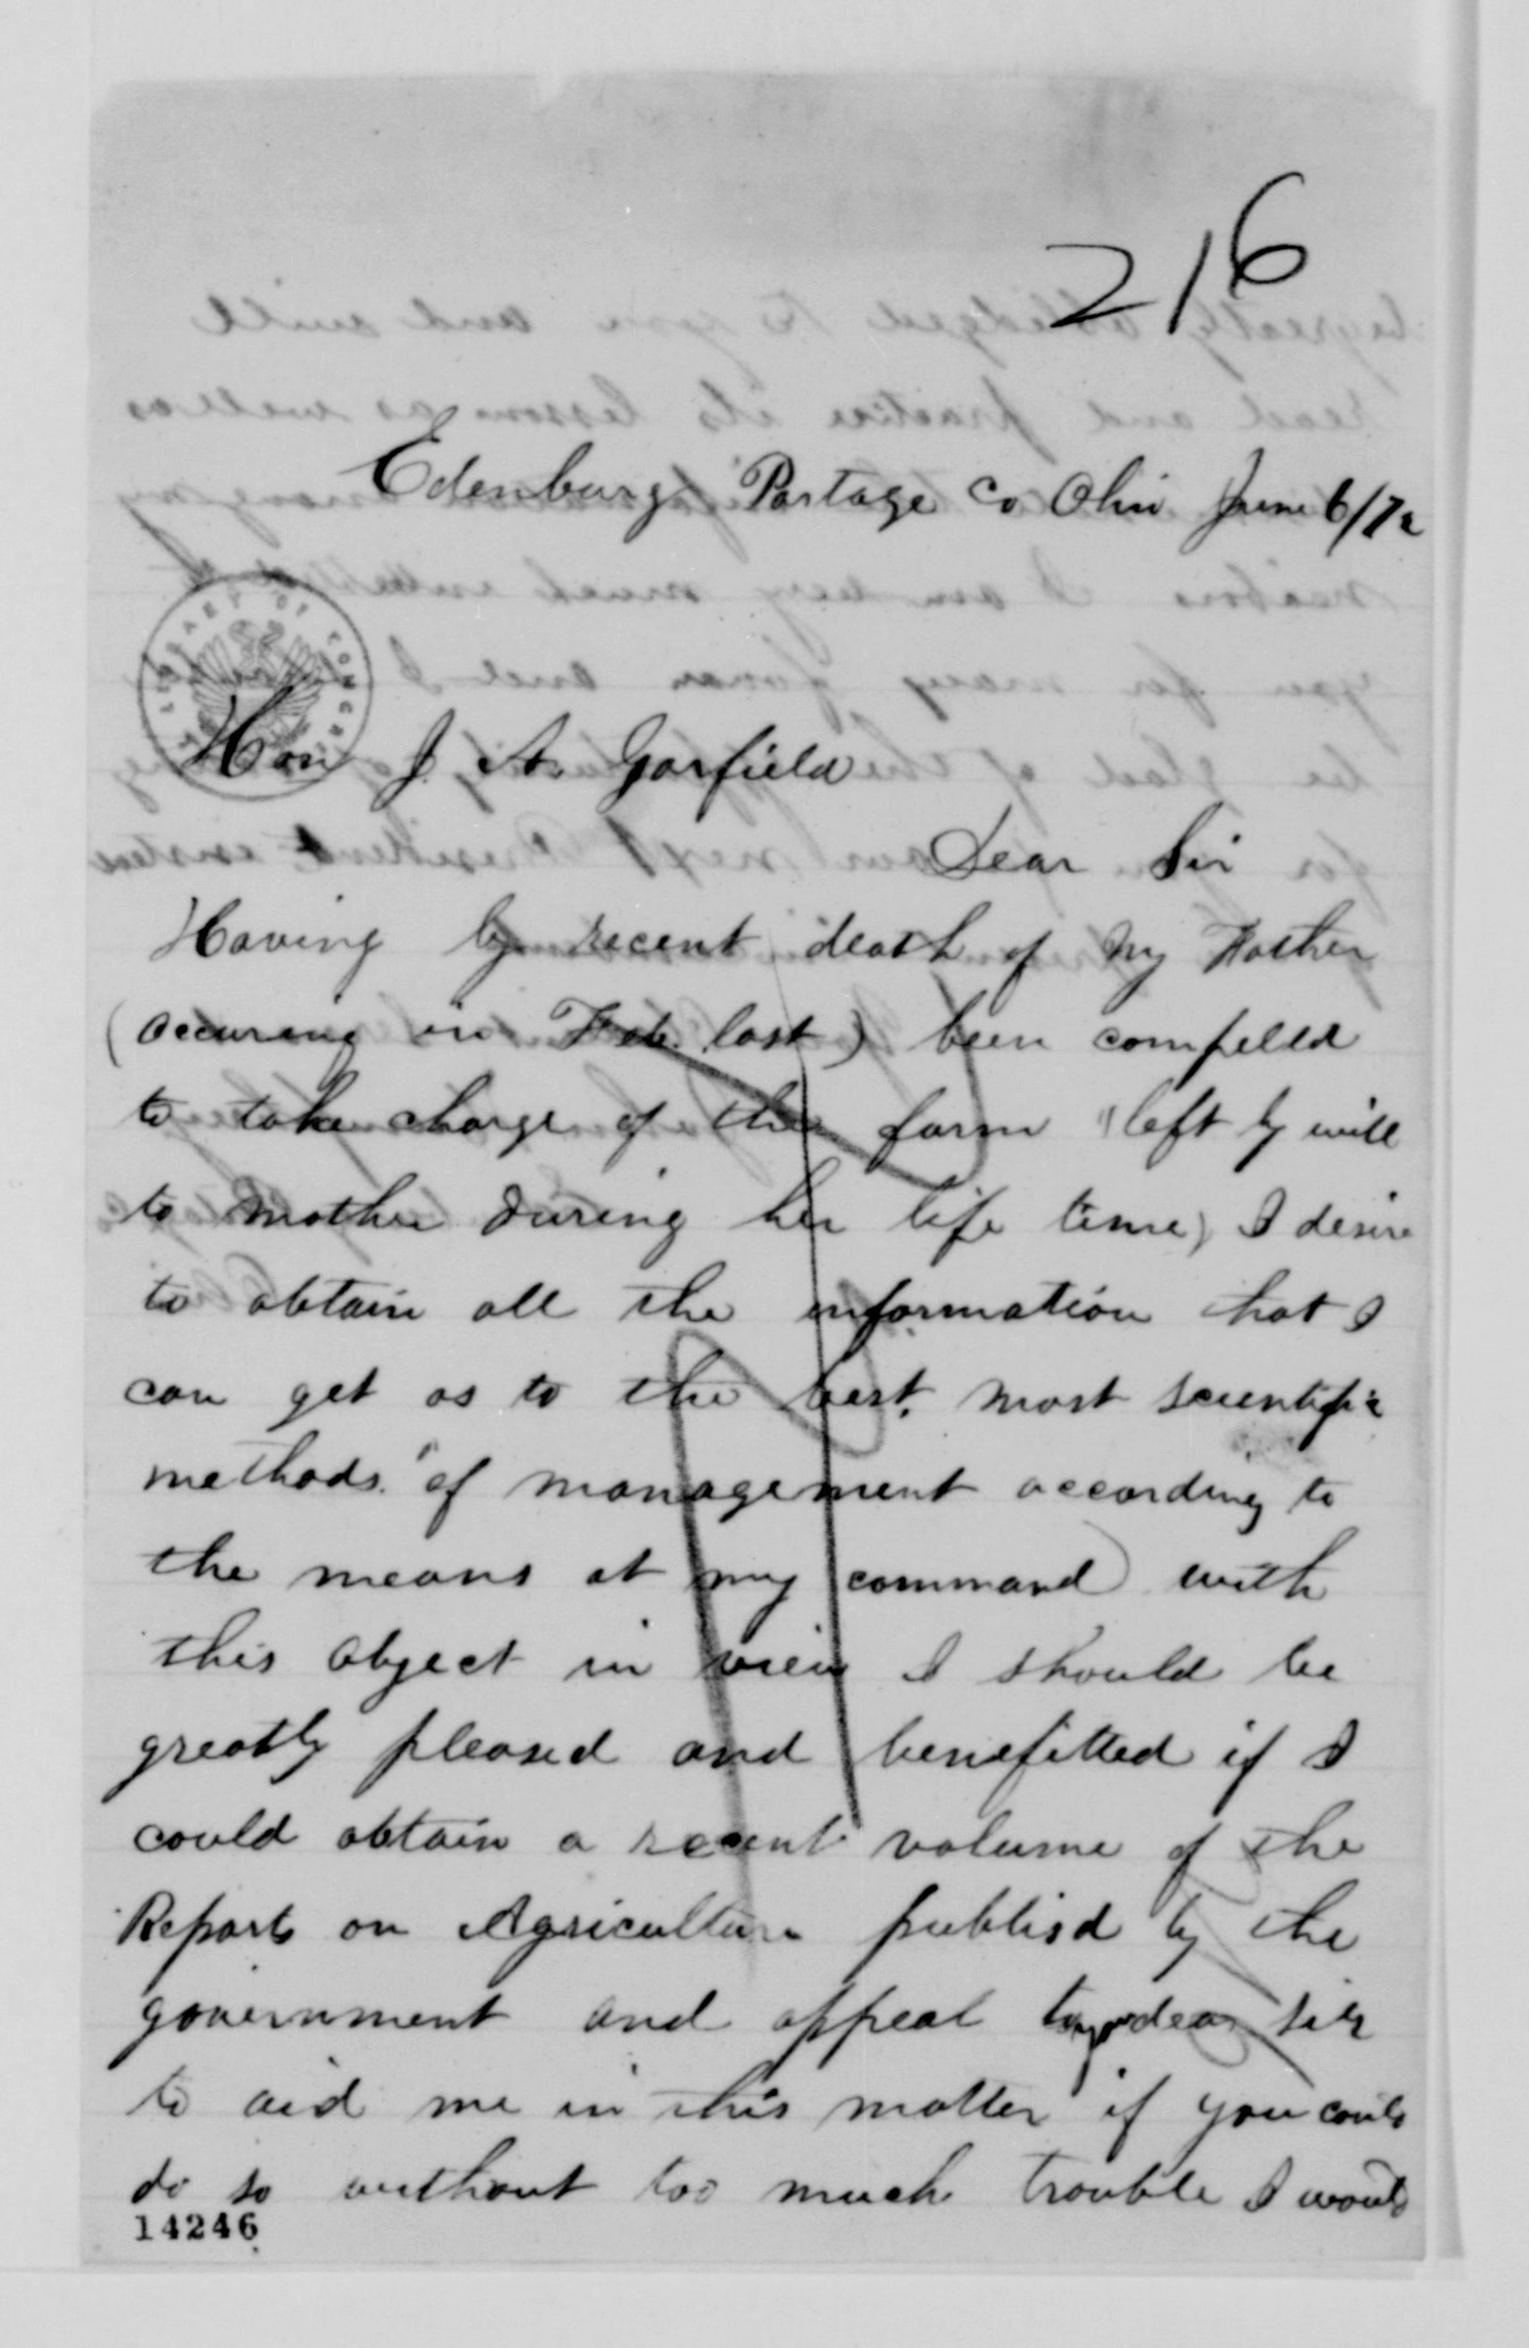 216
Edenburg Portage Co Ohio June 6/72
Hon J. A. Garfield
Dear Sir
Having by recent death of my Father
(occuring in Feb. last) been compelld
to take charge of the farm (left by will
to mother during her life time) I desire
to obtain all the information that I
can get as to the best, most scientific
methods of management according to
the means at my command with
this object in view I should be
greatly pleased and benefitted if I
could obtain a recent volume of the
Reports on Agriculture publisd by the
government and appeal to you dear sir
to aid me in this matter if you could
do so without too much trouble I would
14246